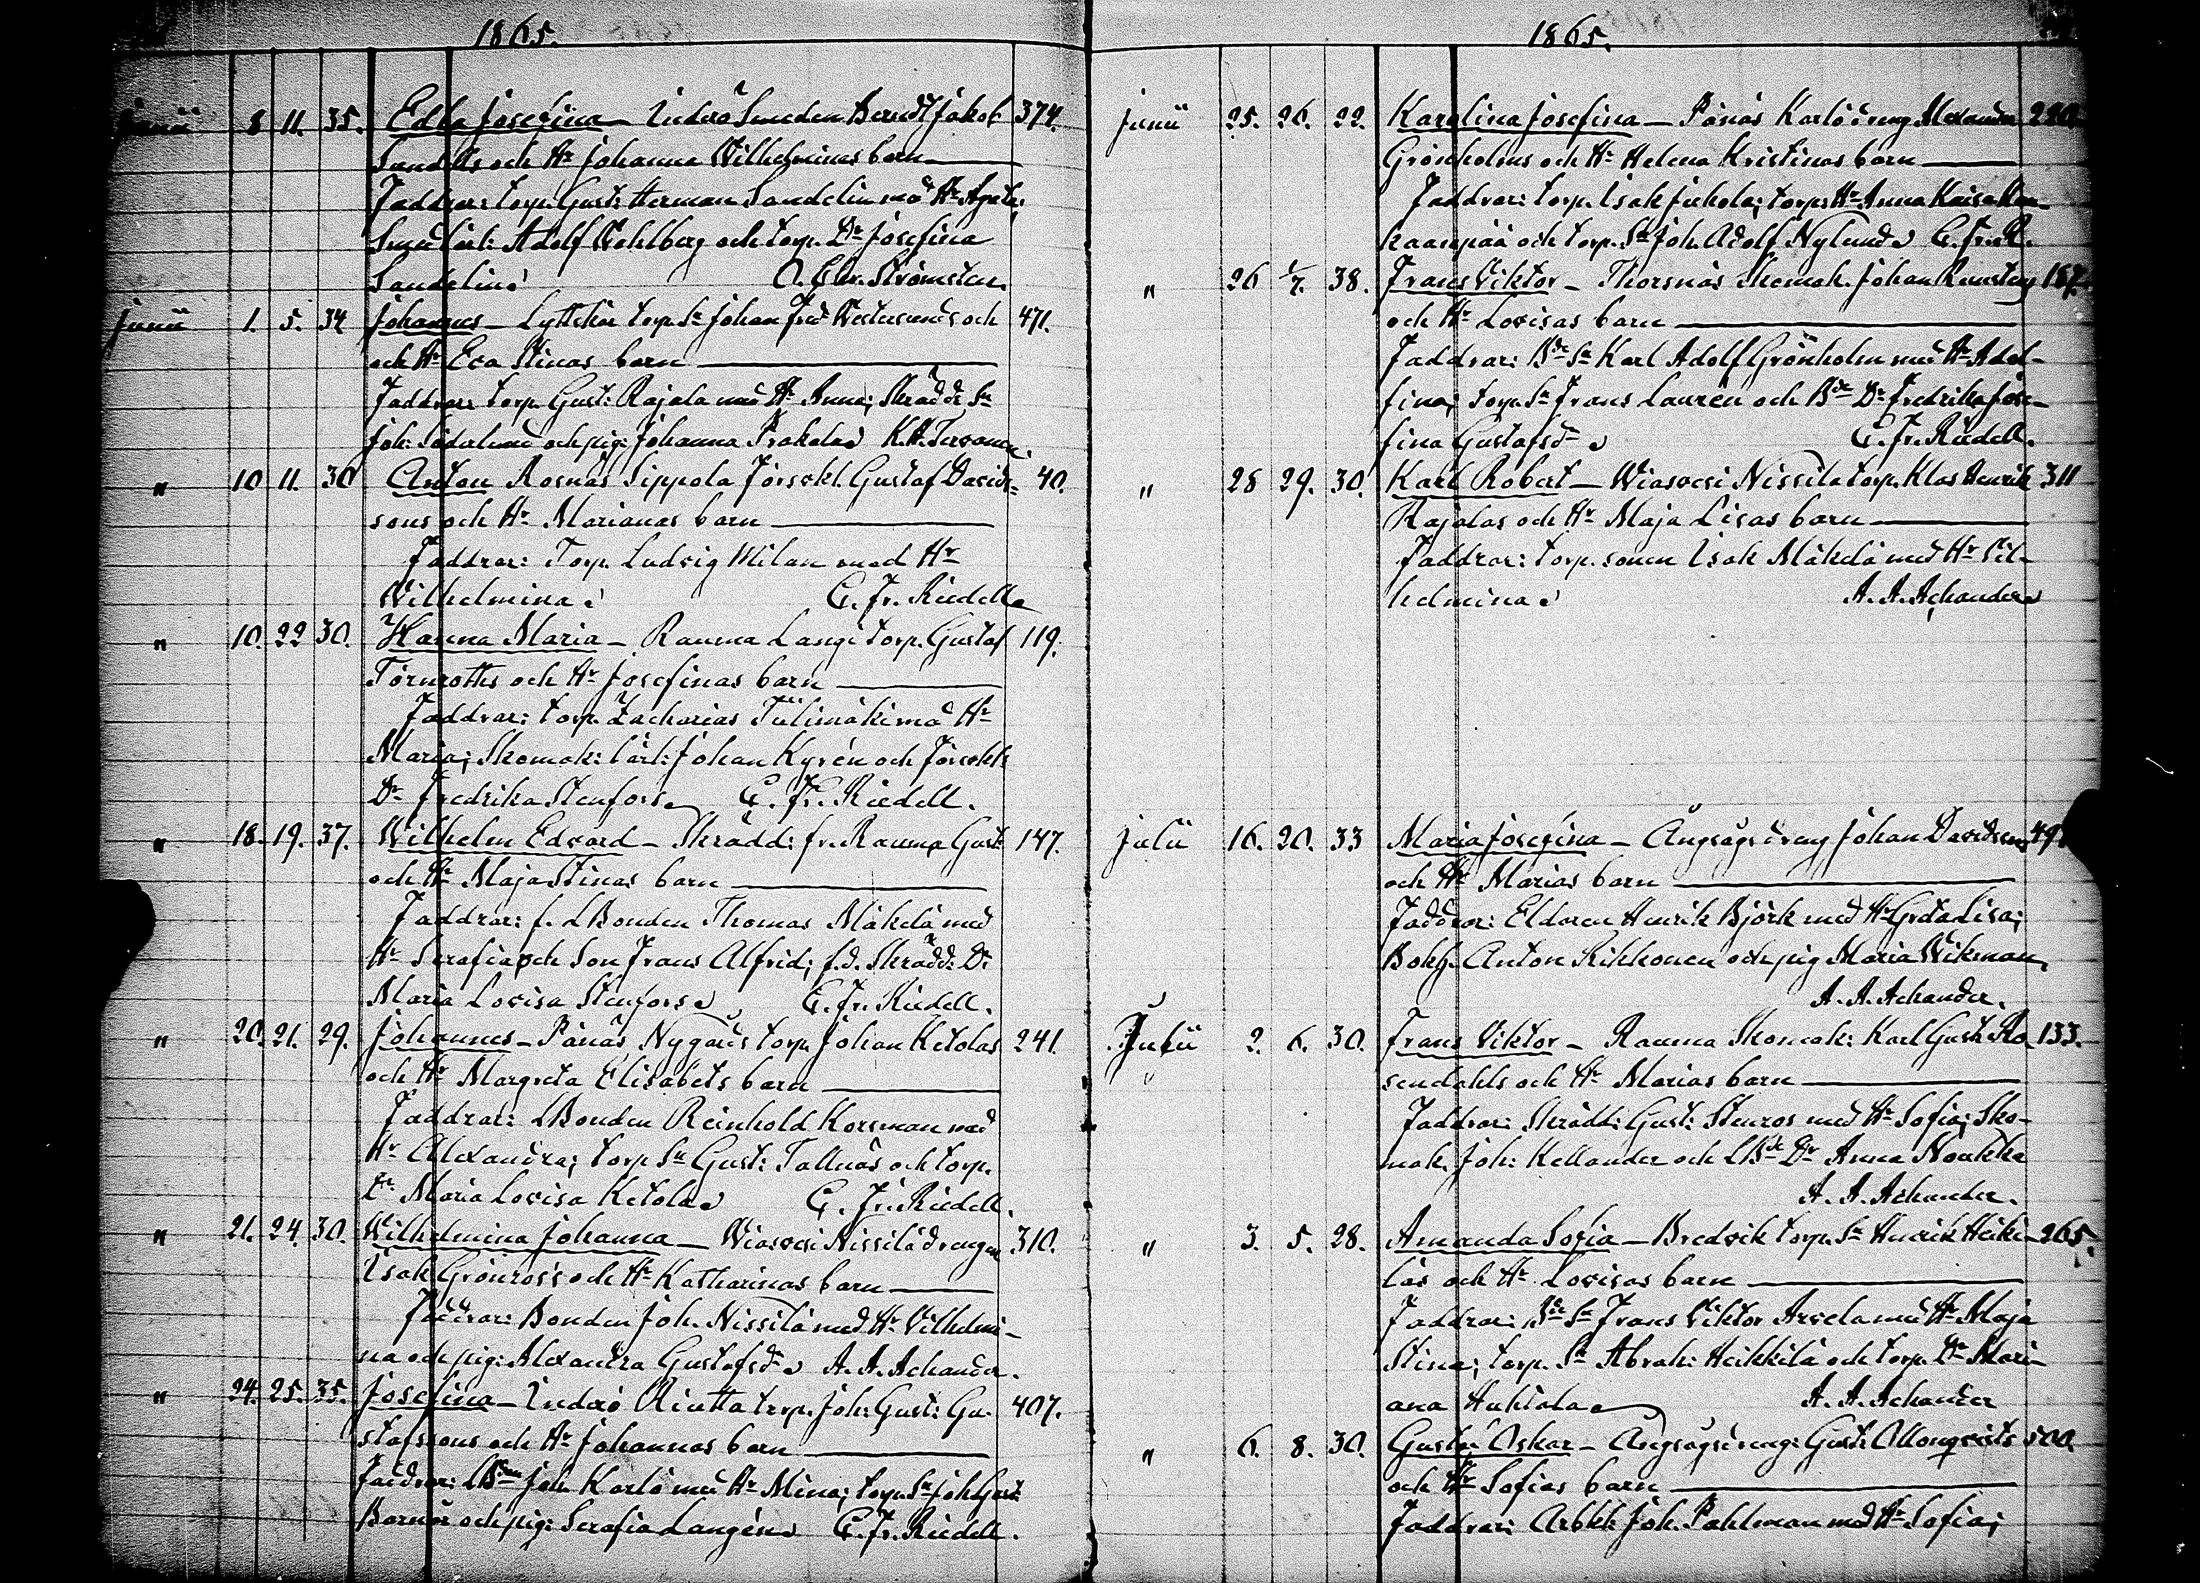 1865.
junii 8 11. 35. Edla Josefina – Inderö Smeden Berndt Jakob 374.
Sundells och Hr Johanna Wilhelminas barn
Faddrar: torp. Gust: Herman Sandelin md Hr Agata;
Smed lärl: Adolf Wahlberg och torp. Dr Josefina
Sandelin. Strömsten.
junii 1. 5. 34 Johannes – Lyttskär torp. Sn Johan Fred Westersunds och 471.
och Hr Eva Stinas barn
Faddrar: torp. Gust: Rajala med Hr Anna; Skrädd: Sn
Joh: Södalund och pig: Johanna K. H. Tervonen.
" 10 11. 30 Anton Rosnäs Sippola Försvkl. Gustaf Davids= 40.
sons och Hr Marianas barn
Faddrar: Torp. Ludvig Milan med Hr
Wilhelmina. C. Fr. Riedell
" 10. 22 30. Hanna Maria – Rauma Langi torp. Gustaf 119.
Törnroths och Hr Josefinas barn
Faddrar: torp. Zacharias Tülimäki md Hr
Maria; Skomak: lärl: Johan Kyrén och Försvkl:
Dr Fredrika Stenfors. C. Fr. Riedell.
" 18. 19. 37. Wilhelm Edvard – Skrädd: fr. Rauma Gust: 147.
och Hr Maja Stinas barn
Faddrar: f. LBonden Thomas Mäkelä med
Hr Serafia och Son Frans Alfrid; f.d. Skrädd: Dr
Maria Lovisa Stenfors. C. Fr. Riedell.
" 20. 21. 29. Johannes – Pänäs Nygårds torp. Johan Ketolas 241.
och Hr Margreta Elisabets barn
Faddrar: LBonden Reinhold Korsman med
Hr Alexandra; torp Sn Gust: Tallnäs och torp.
Dr Maria Lovisa Ketola. C. Fr. Riedell.
" 21. 24. 30. Wilhelmina Johanna – Wiasvesi Nissilä drengen 310.
Isak Grönros's och Hr Katharinas barn
Faddrar: Bonden Joh. Nissilä med Hr Vilhelmi-
na och pig: Alexandra Gustafsdr A. A. Achander.
" 24. 25. 35. Josefina – Inderö Riutta torp. Joh: Gust: Gu- 407.
stafssons och Hr Johannas barn
Faddrar: LBden Joh. Karlö md Hr Mina; torp. Sn Joh Gust
Barnör och pig: Serafia Langén. C. Fr. Riedell.
1865.
junii 25. 26. 22. Karolina Josefina – Pänäs Karlö dreng Alexander 220.
Grönholms och Hr Helena Kristinas barn
Faddrar: torp. Isak Jukola; torp: Hr Anna Kaisa Kan-
kaanpää och torp. Sn Joh. Adolf Nylund. C. Fr. R.
" 26 1/7. 38. Frans Viktor – Thorsnäs Skomak. Johan 187.
och Hr Lovisas barn
Faddrar: Bde Sn Karl Adolf Grönholm med Hr Adol-
fina; torp. Sn Frans Laurén och Bde Dr Fredrika Jose-
fina Gustafsdr C. Fr. Riedell.
" 28 29. 30. Karl Robert – Wiasvesi Nissilä torp. Klas Henrik 311
Rajalas och Hr Maja Lisas barn
Faddrar: torp. sonen Isak Mäkelä med Hr Vil-
helmina. A. A. Achander
julii 16. 20. 33 Maria Josefina – Ångsågsdreng Johan Davidssons 497
och Hr Marias barn
Faddrar: Eldaren Henrik Björk med Hr Greta Lisa;
Bokh. Anton Rikkonen och pig Maria Wikman,
A. A. Achander.
Julii 2. 6. 30. Frans Viktor – Rauma Skomak: Karl Gust: Ro- 133.
sendahls och Hr Marias barn
Faddrar: Skrädd: Gust: Stenros med Hr Sofia; Sko-
mak. Joh: Kellander och LBde Dr Anna Noukka
A. A. Achander.
" 3. 5. 28. Amanda Sofia – Bredvik torp. Sn Henrik Heiki- 265.
läs och Hr Lovisas barn
Faddrar: Bde Sn Frans Viktor Arvela md Hr Maja
Stina; torp. Sn Abrah: Heikkilä och torp. Dr Mari-
ana Huhtala. A. A. Achander
" 6. 8. 30. Gustaf Oskar – Ångsågsdreng: Gust: Allonqvists 500
och Hr Sofias barn
Faddrar: Arbk: Joh. Pahlman md Hr Sofia;